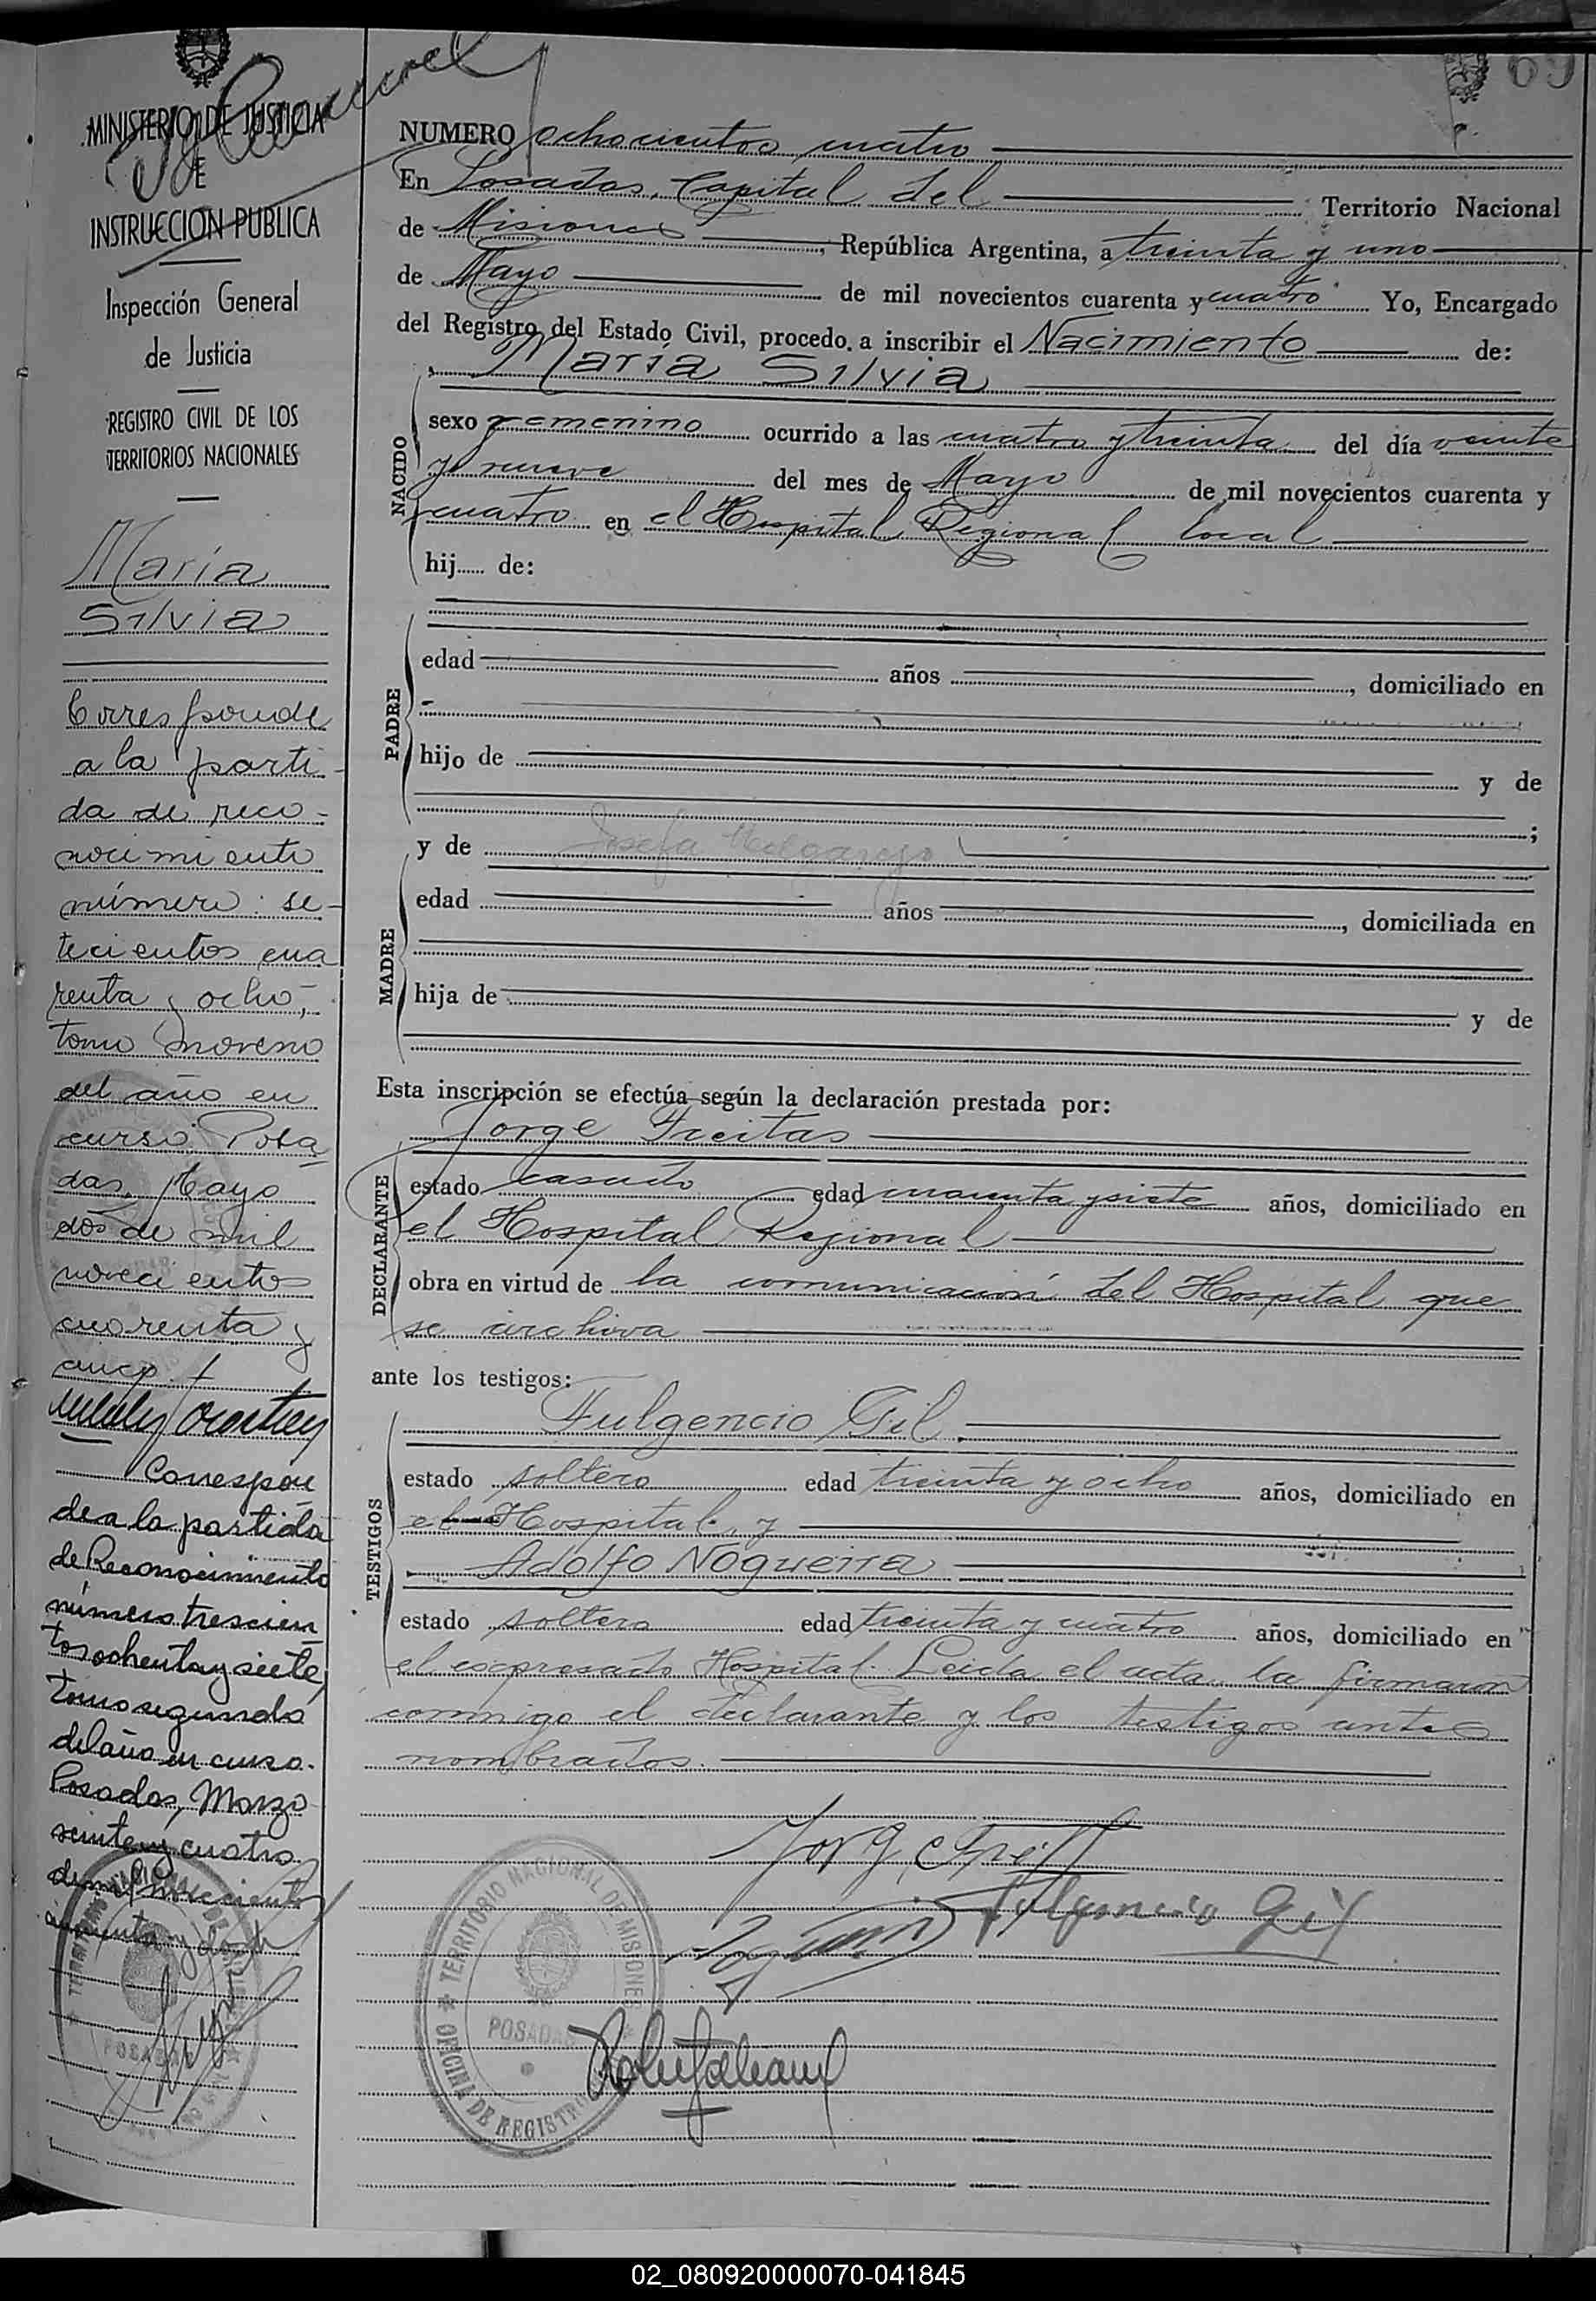 69
MINISTERIO DE JUSTICIA
E
INSTRUCCION PUBLICA
Inspección General
de Justicia
REGISTRO CIVIL DE LOS
TERRITORIOS NACIONALES
María
Silvia
Corresponde
a la parti-
da de reco-
nocimiento
número: se-
tecientos cua
renta y ocho,
tomo moreno
del año en
curso. Posa
das, Mayo
dos de mil
novecientos
cuarenta y
cinco.
Correspon
de a la partida
de Reconocimiento
número trescien
tos ochenta y siete,
tomo segundo
del año en curso.
Posadas, Marzo
veinte y cuatro
de mil novecientos
cincuenta y dos
NUMERO ochocientos cuatro
En Posadas, Capital del Territorio Nacional
de Misiones, República Argentina, a treinta y uno
de Mayo de mil novecientos cuarenta y cuatro Yo, Encargado
del Registro del Estado Civil, procedo a inscribir el Nacimiento de:
María Silvia
NACIDO
sexo femenino ocurrido a las cuatro y treinta del día veinte
y nueve del mes de Mayo de mil novecientos cuarenta y
cuatro en el Hospital Regional local
hij..... de:
PADRE
edad años , domiciliado en
hijo de y de
;
y de Josefa Melgarejo
MADRE
edad años , domiciliada en
hija de y de
Esta inscripción se efectúa según la declaración prestada por:
Jorge Freitas
DECLARANTE
estado casado edad cuarenta y siete años, domiciliado en
el Hospital Regional
obra en virtud de la comunicación del Hospital que
se archiva
ante los testigos:
Fulgencio Gil
TESTIGOS
estado soltero edad treinta y ocho años, domiciliado en
el Hospital, y
Adolfo Nogueira
estado soltero edad treinta y cuatro años, domiciliado en
el expresado Hospital. Leída el acta, la firmaron
conmigo el declarante y los testigos antes
nombrados.
Fulgencio Gil
TERRITORIO NACIONAL DE MISIONES
POSADAS
OFICINA DE REGISTRO
POSADAS
02_080920000070-041845